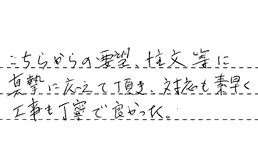 こちらからの要望、注文等に
真摯に応えて頂き、対応も素早く
工事も丁寧で良かった。